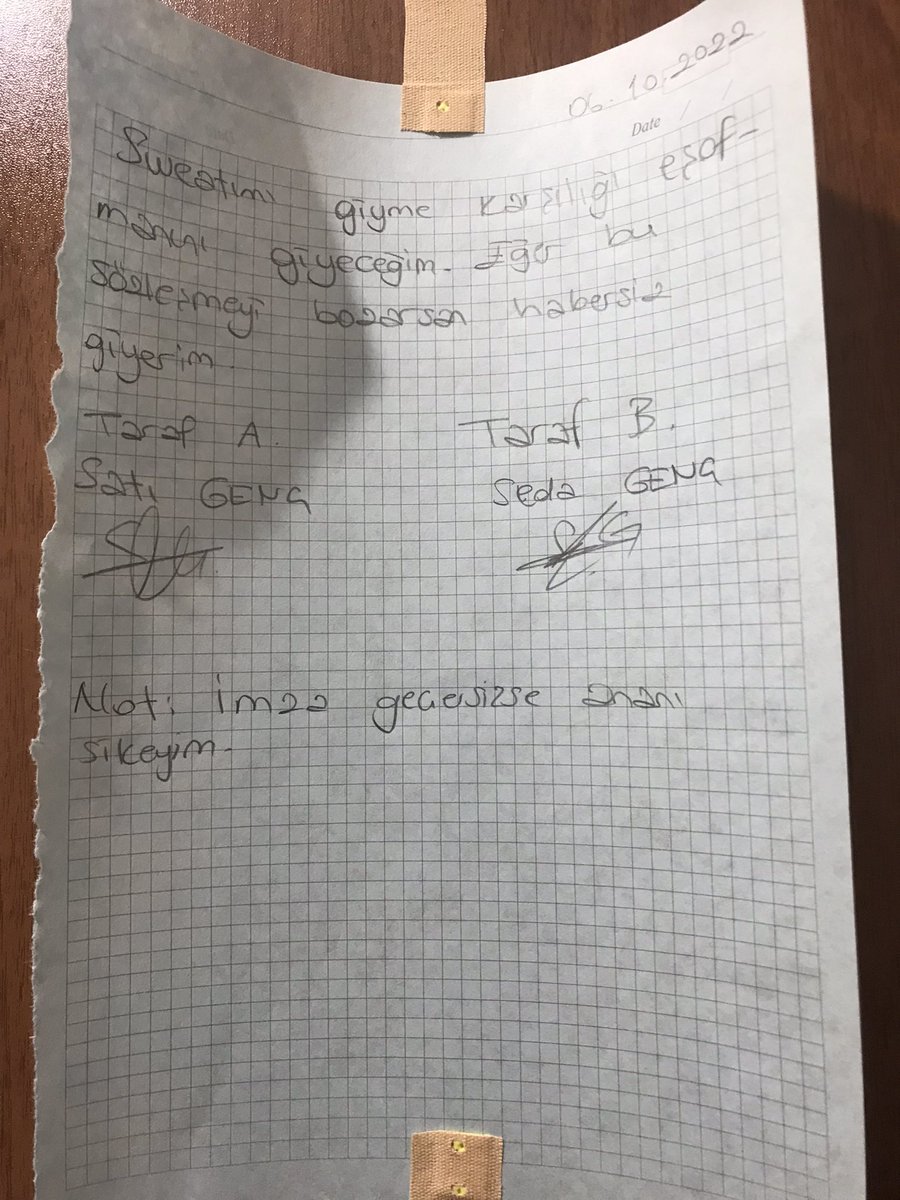 06.10.2022
Date / /
Sweatımı giyme karşılığı eşof-
manını giyeceğim. Eğer bu
sözleşmeyi bozarsan habersiz
giyerim.
Taraf A. Taraf B.
Satı GENÇ Seda GENÇ
Not: İmza geçersizse ananı
sikeyim.